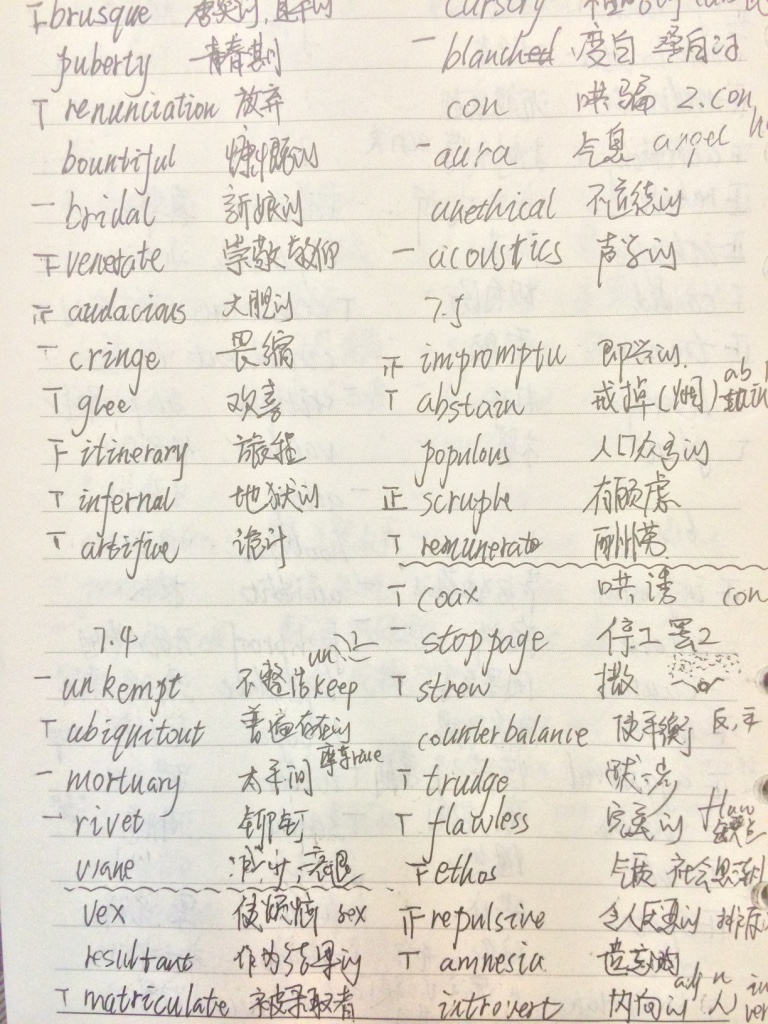 brusque
puberty 青春期
renunciation 放弃
bountiful 慷慨的
bridal 新娘的
venerate 崇敬 敬仰
audacious 大胆的
cringe 畏缩
glee 欢喜
itinerary 旅程
infernal 地狱的
artifice 诡计
7.4
unkempt 不整洁 keep
ubiquitout 普遍存在的
mortuary 太平间
rivet 铆钉
wane 减少;衰退
vex 使烦恼 sex
resultant 作为结果的
matriculate 被录取者
cursory
blanched 变白 译白的
con 哄骗 2.con
aura 气息 angel
unethical 不道德的
acoustics 声学的
7.5
impromptu 即兴的
abstain 戒掉(烟)
populous 人口众多的
正 scruple 有顾虑
remunerate 酬劳
coax 哄诱 con
stoppage 停工 罢工
strew 撒
counterbalance 使平衡 反,平
trudge
flawless 完美的 flaw 缺点
ethos 气质 社会思潮
repulsive 令人反感的
amnesia 遗忘的
introvert 内向的 人 adj n